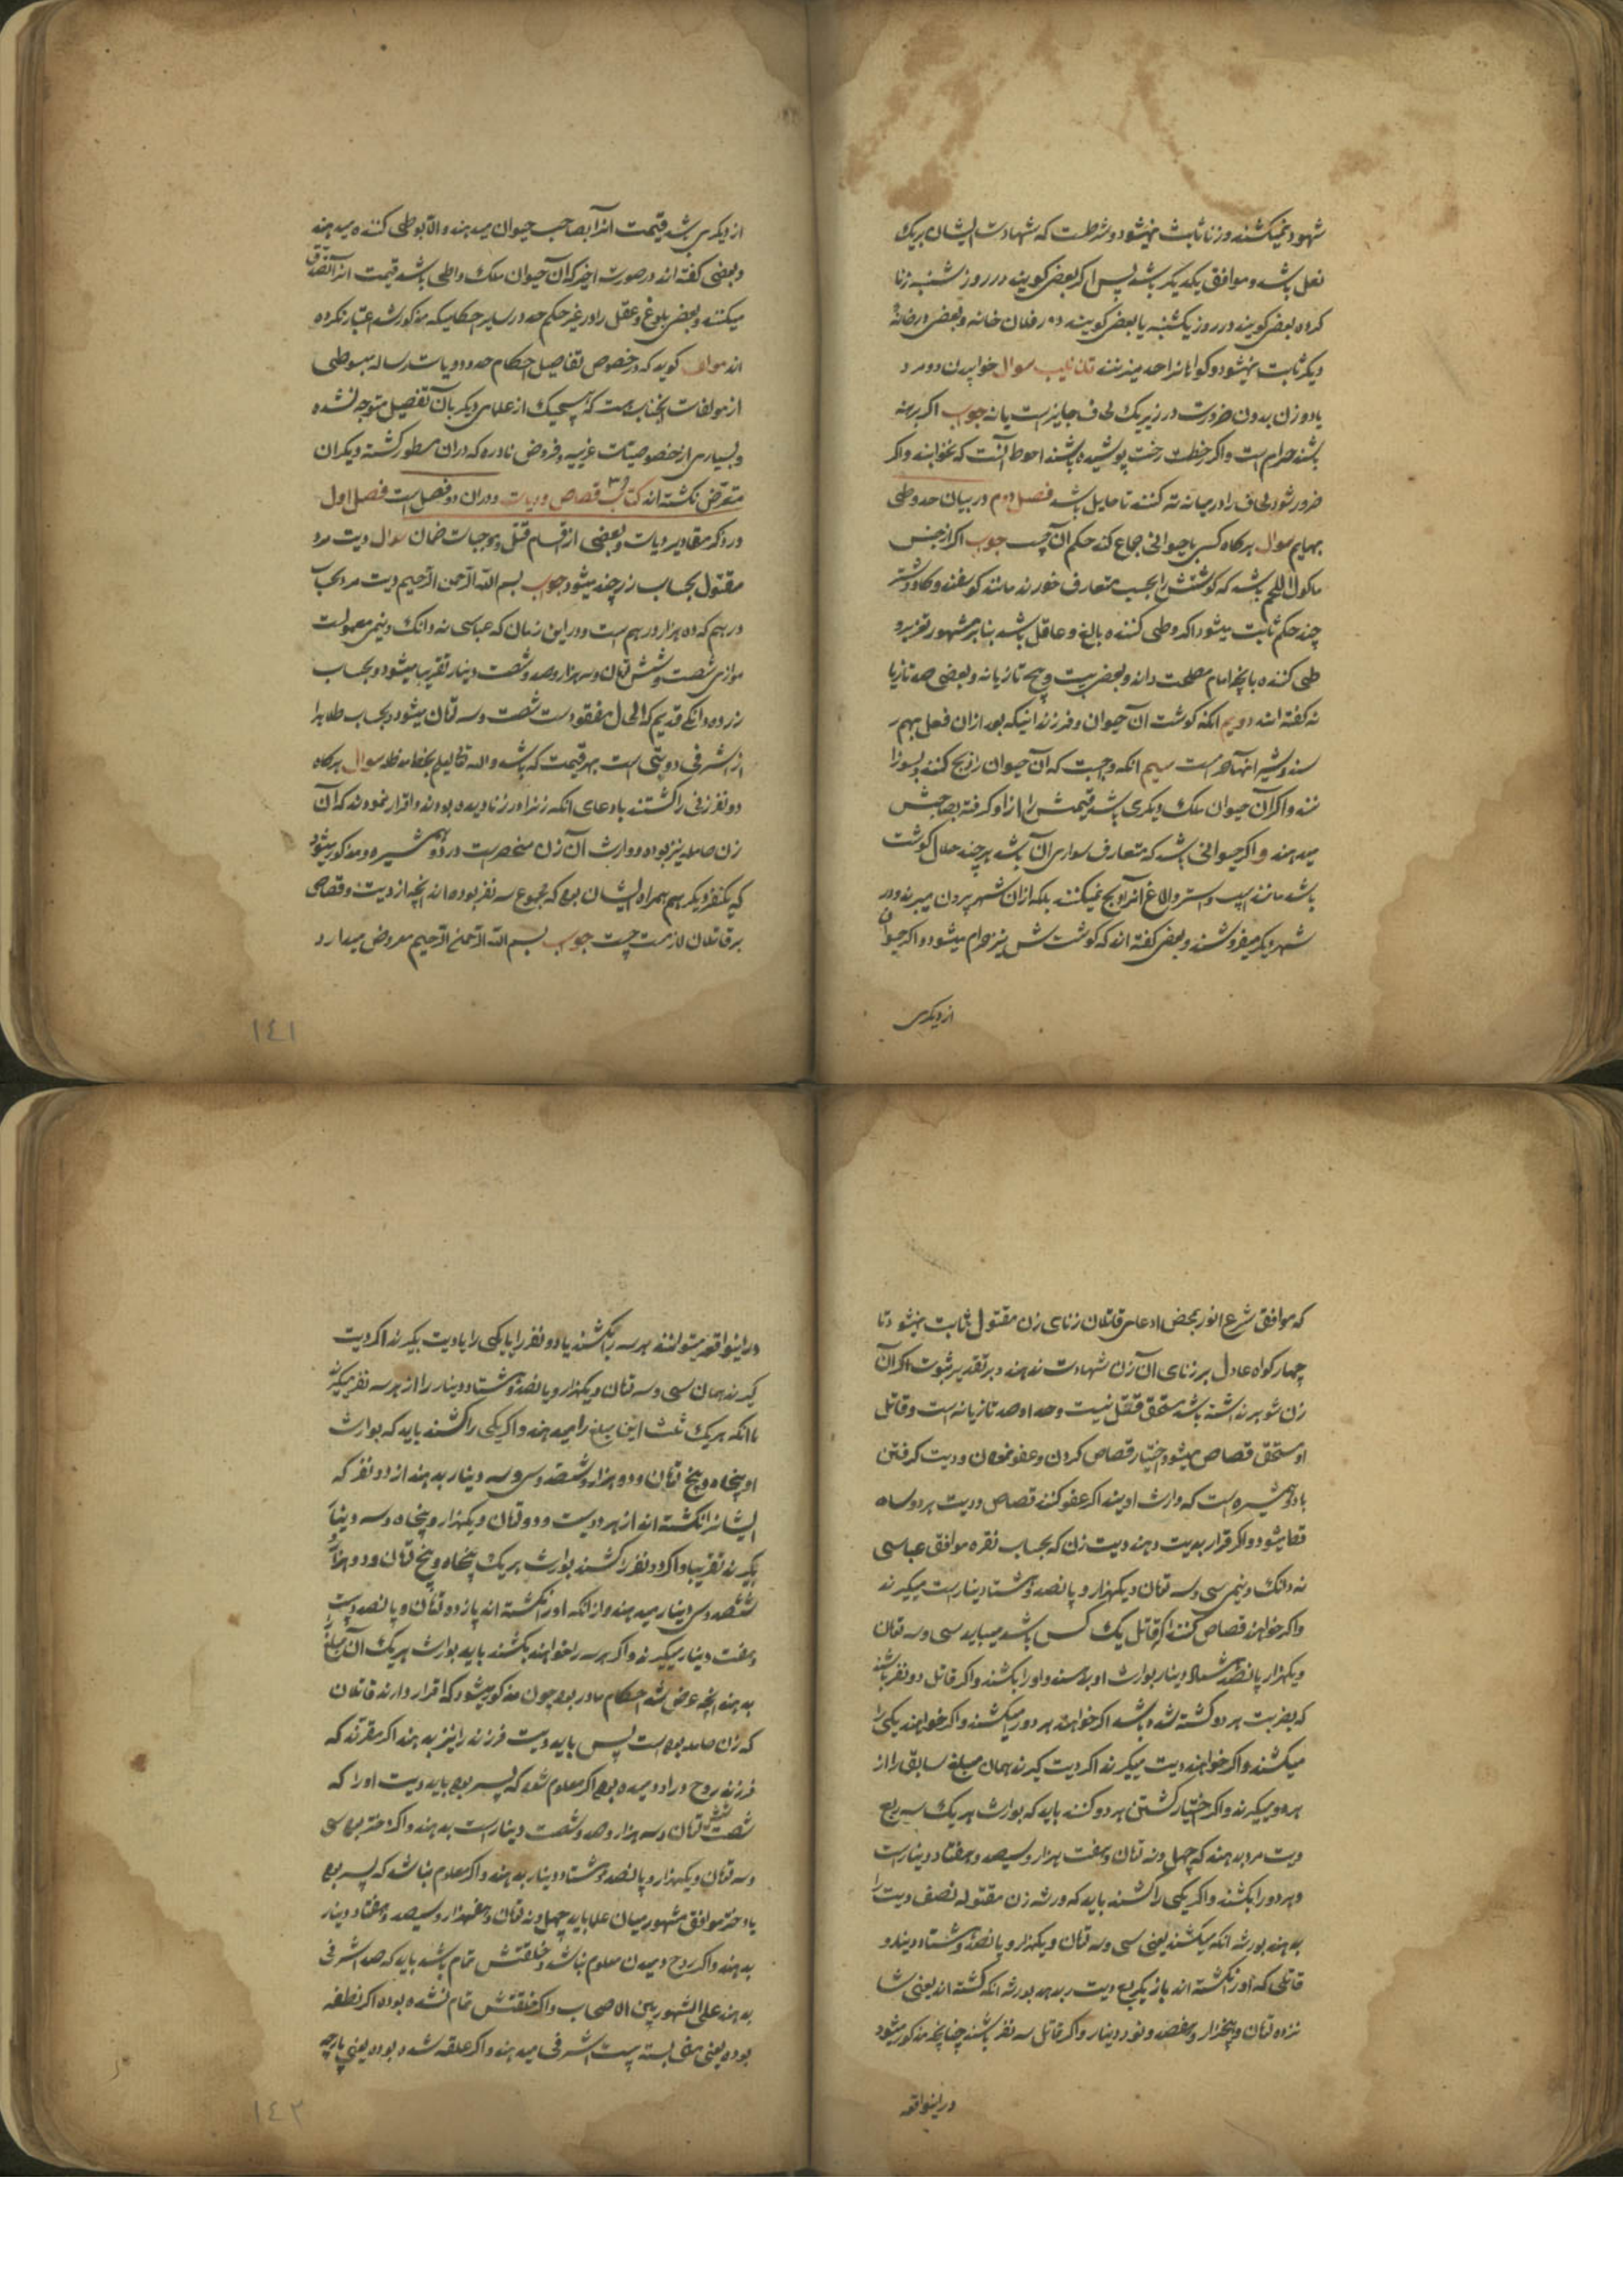 شهود نمیکشند و زنا ثابت نمیشود و شرطست که شهادت ایشان بر یک
فعل باشد و موافق یکدیگر باشد پس اگر بعضی گویند در روز شنبه زنا
کرده بعضی گویند در روز یکشنبه یا بعضی گویند در فلان خانه و بعضی در خانهٔ
دیگر ثابت نمیشود و گواهانرا حد میزنند تذنیب سوال خوابیدن دو مرد
یا دو زن بدون ضرورت در زیر یک لحاف جایز است یا نه جواب اگر برهنه
باشند حرام است و اگر رخت پوشیده باشند احوط آنست که نخوابند و اگر
ضرور شود لحاف را در میانه ته کنند تا حایل باشد فصل دوم در بیان حد وطی
بهایم سوال هرگاه کسی با حیوانی جماع کند حکم آن چیست جواب اگر از جنس
ماکول اللحم باشد که گوشتش را بحسب متعارف خورند مانند گوسفند و گاو و شتر
چند حکم ثابت میشود اگر وطی کننده بالغ و عاقل باشد بنا بر مشهور تعزیر و
طی کننده بآنچه امام مصلحت داند و بعضی بیست و پنج تازیانه و بعضی صد تازیا
نه گفته اند دویم آنکه گوشت آن حیوان و فرزندانیکه بعد از آن فعل بهم ر
سند و شیر آنها حرامست سیم آنکه واجبست که آن حیوان را ذبح کنند و بسوزا
نند و اگر آن حیوان ملک دیگری باشد قیمتش را از او گرفته بصاحبش
میدهند و اگر حیوانی باشد که متعارف سواری آن باشد هر چند حلال گوشت
باشد مانند اسب و استر و الاغ آنرا ذبح نمیکنند بلکه از آن شهر بیرون میبرند و در
شهر دیگر میفروشند و بعضی گفته اند که گوشتش نیز حرام میشود و اگر حیوان
از دیگری
از دیگری باشد قیمت آنرا بصاحب حیوان میدهند و الا بوطی کننده میدهند
و بعضی گفته اند در صورت اخیر که آن حیوان ملک واطی باشد قیمت آنرا تصدق
میکنند و بعضی بلوغ و عقل را در غیر حکم حد در سایر احکامیکه مذکور شد اعتبار نکرده
اند مولف گوید که در خصوص تفاصیل احکام حدود و دیات رساله مبسوطی
از مولفات آنجناب هست که هیچیک از علمای دیگر بآن تفصیل متوجه نشده
و بسیاری از خصوصیات غریبه و فروض نادره که در آن مسطور گشته دیگران
متعرض نگشته اند کتاب قصاص و دیات و در آن دو فصل است فصل اول
در ذکر مقادیر دیات و بعضی از اقسام قتل و موجبات ضمان سوال دیت مرد
مقتول بحساب زر چند میشود جواب بسم الله الرحمن الرحیم دیت مرد بحساب
درهم که ده هزار درهم است و در این زمان که عباسی نه دانک و نیمی معمولست
موازی شصت و شش تمان و سه هزار و صد و شصت دینار تقریبا میشود و بحساب
زر ده دانگی قدیم که الحال مفقودست شصت و سه تمان میشود و بحساب طلا هزا
ر اشرفی دو بتی است بهر قیمت که باشد والله تعالی یعلم بخطه مد ظله سوال هرگاه
دو نفر زنی را کشتند باد عای آنکه زنرا در زنا دیده بودند و اقرار نمودند که آن
زن حامله نیز بوده و وارث آن زن منحصر است در دو همشیره و مذکور میشود
که یکنفر دیگر هم همراه ایشان بوده که مجموع سه نفر بوده اند آنچه از دیت و قصاص
بر قاتلان لازمست چیست جواب بسم الله الرحمن الرحیم معروض میدارد
١٤١
که موافق شرع انور بمحض ادعای قاتلان زنای زن مقتول ثابت نمیشود تا
چهار گواه عادل بر زنای آن زن شهادت ندهند و بر تقدیر ثبوت اگر آن
زن شوهر نداشته باشد مستحق قتل نیست و حد او صد تازیانه است و قاتل
او مستحق قصاص میشود و اختیار قصاص کردن و عفو نمودن و دیت گرفتن
با دو همشیره است که وارث اویند اگر عفو کنند قصاص و دیت هر دو ساه
قط میشود و اگر قرار بدیت دهند دیت زن که بحساب نقره موافق عباسی
نه دانک و نیمی سی و سه تمان و یکهزار و پانصد و هشتاد دینار است میگیرند
و اگر خواهند قصاص کنند اگر قاتل یک کس باشد میباید سی و سه تمان
و یکهزار پانصد هشتاد دینار بوارث او بدهند و او را بکشند و اگر قاتل دو نفر باشند
که بضربت هر دو کشته شده باشد اگر خواهند هر دو را میکشند و اگر خواهند یکی را
میکشند و اگر خواهند دیت میگیرند اگر دیت گیرند همان مبلغ سابق را از
هر دو میگیرند و اگر اختیار کشتن هر دو کنند باید که بوارث هر یک سه ربع
دیت مرد بدهند که چهل و نه تمان و هفت هزار و سیصد و هفتاد دینار است
و هر دو را بکشند و اگر یکی را کشند باید که ورثه زن مقتوله نصف دیت را
بدهند بورثه آنکه میکشند یعنی سی و سه تمان و یکهزار و پانصد و هشتاد دینار و
قاتلی که او را نکشته اند باز یکربع دیت بدهد بورثه آنکه کشته اند یعنی شا
نزده تمان و پنجهزار و هفصد و نود دینار و اگر قاتل سه نفر باشند چنانچه مذکور میشود
در اینواقعه
در اینواقعه میتوانند هر سه را بکشند یا دو نفر را یا یکی را یا دیت بگیرند اگر دیت
گیرند همان سی و سه تمان و یکهزار و پانصد و هشتاد دینار را از هر سه نفر میگیرند
با آنکه هر یک ثلث این مبلغ را میدهند و اگر یکی را کشند باید که بوارث
او پنجاه و پنج تمان و دو هزار و ششصد و سی و سه دینار بدهند از دو نفر که
ایشانرا نکشته اند از هر دو بیست و دو تمان و یکهزار و پنجاه و سه دینار
بگیرند تقریبا و اگر دو نفر را کشند بوارث هر یک پنجاه و پنج تمان و دو هزار
ششصد و سی دینار میدهند و از آنکه او را نکشته اند یازده تمان و پانصد و بیست
و هفت دینار میگیرند و اگر هر سه را خواهند بکشند باید بوارث هر یک آن مبلغ را
بدهند آنچه عرض شد احکام مادر بود چون مذکور میشود که اقرار دارند قاتلان
که زن حامله بوده است پس باید دیت فرزند را نیز بدهند اگر مقرند که
فرزند روح در او دمیده بود اگر معلوم شود که پسر بوده باید دیت او را که
شصت و شش تمان و سه هزار و صد و شصت دینار است بدهند و اگر دختر بوده سی
و سه تمان و یکهزار و پانصد و هشتاد دینار بدهند و اگر معلوم نباشد که پسر بوده
یا دختر موافق مشهور میان علما باید چهل و نه تمان و هفهزار و سیصد و هفتاد دینار
بدهند و اگر روح دمیدن معلوم نباشد و خلقتش تمام باشد باید که صد اشرفی
بدهند علی المشهور بین الاصحاب و اگر خلقتش تمام نشده بوده اگر نطفه
بوده یعنی منی بسته بیست اشرفی میدهند و اگر علقه شده بوده یعنی پارچه
١٤٢